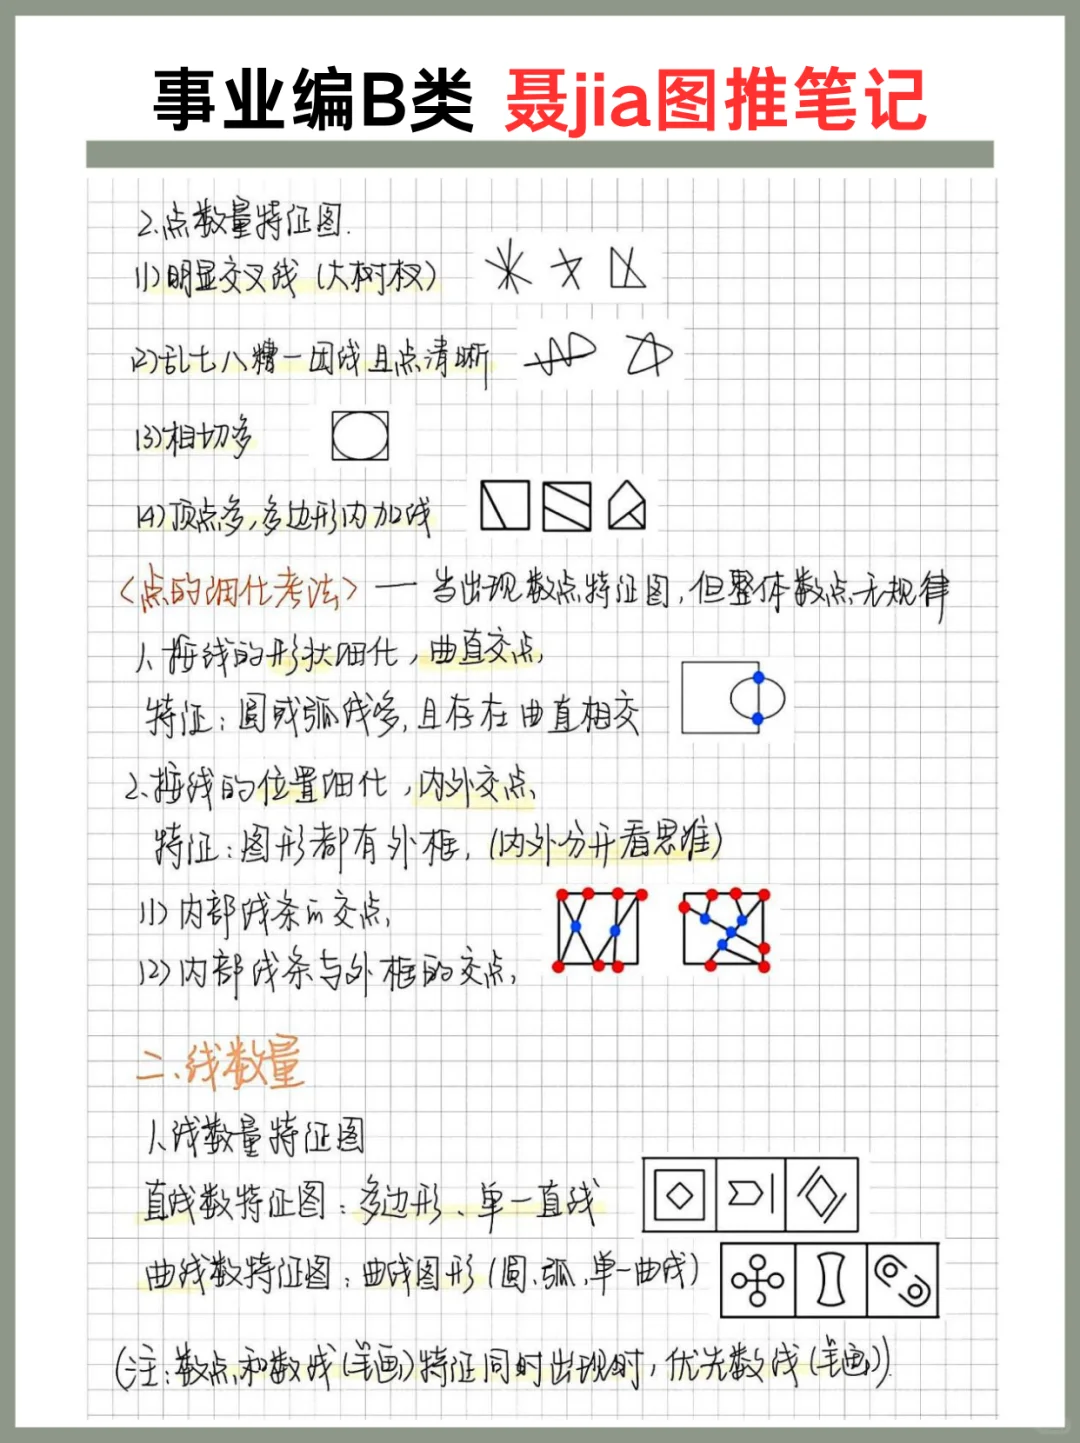 事业编B类 聂jia图推笔记
2.点数量特征图.
(1)明显交叉线(大树杈)
(2)乱七八糟一团线且点清晰
(3)相切多
(4)顶点多,多边形内加线
<点的细化考法>一当出现数点特征图,但整体数点无规律
1.按线的形状细化,曲直交点,
特征:圆或弧线多,且存在曲直相交
2.按线的位置细化,内外交点,
特征:图形都有外框,(内外分开看思维)
(1)内部线条的交点,
(2)内部线条与外框的交点,
二.线数量
1.线数量特征图
直线数特征图:多边形、单一直线
曲线数特征图:曲线图形(圆、弧、单一曲线)
(注:数点和数线(笔画)特征同时出现时,优先数线(笔画)).